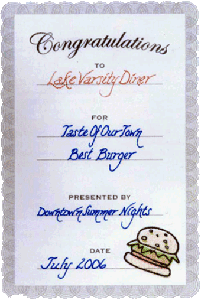 Congratulations
TO
Lake Varsity Diner
FOR
Taste Of Our Town
Best Burger
PRESENTED BY
Downtown Summer Nights
DATE
July 2006